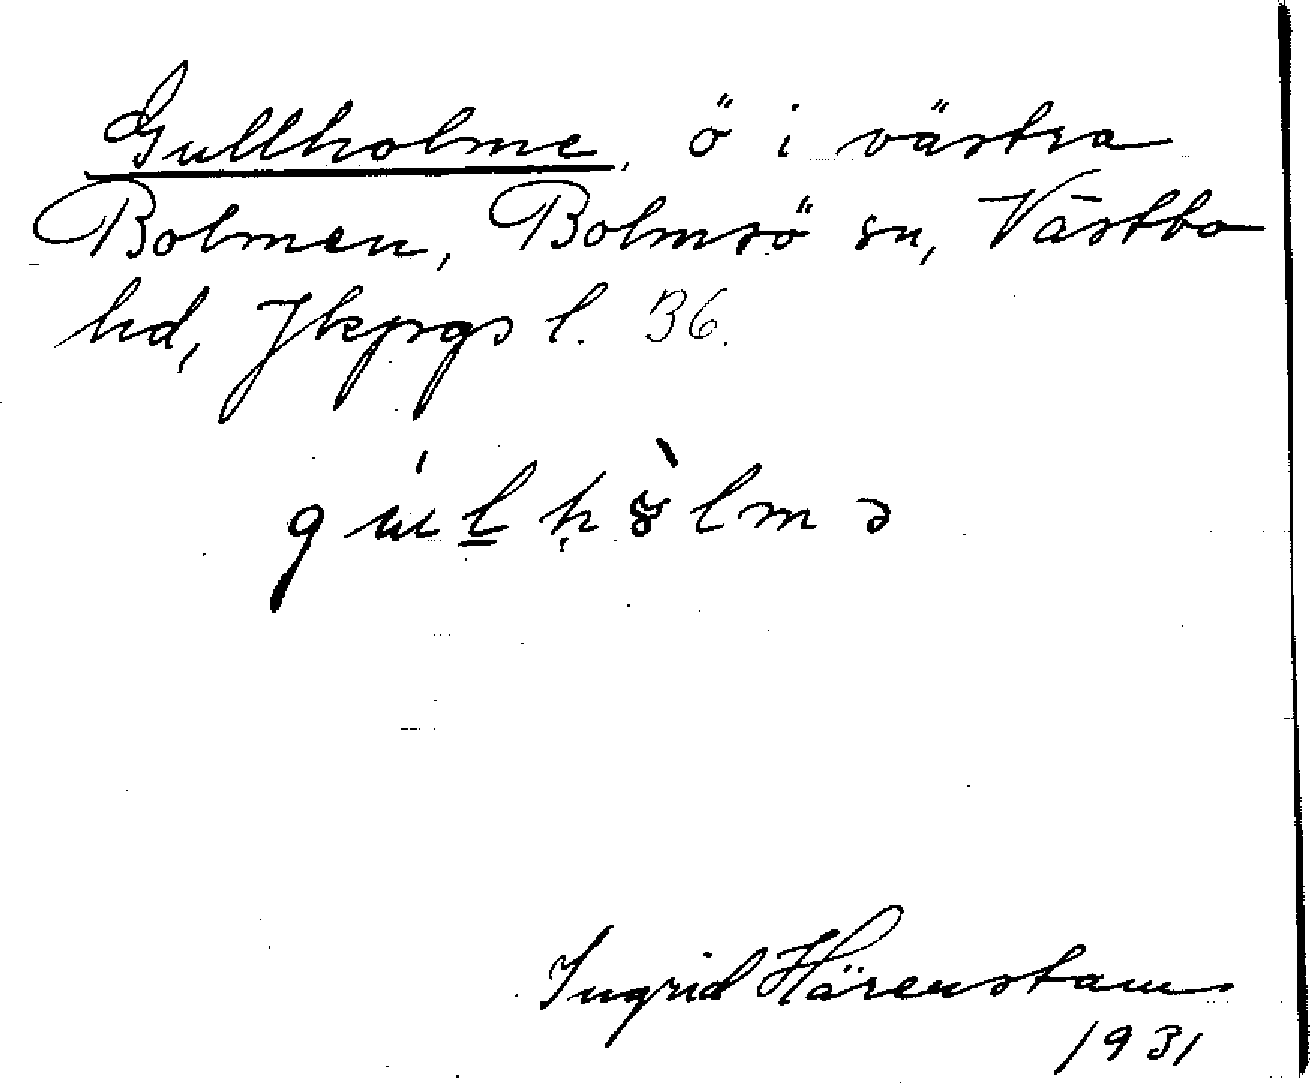 Gullholme, ö i västra
Bolmen, Bolmsö sn, Västbo
hd, Jkpgs l. 36.
gúlhòlmə
Ingrid Härenstam
1931